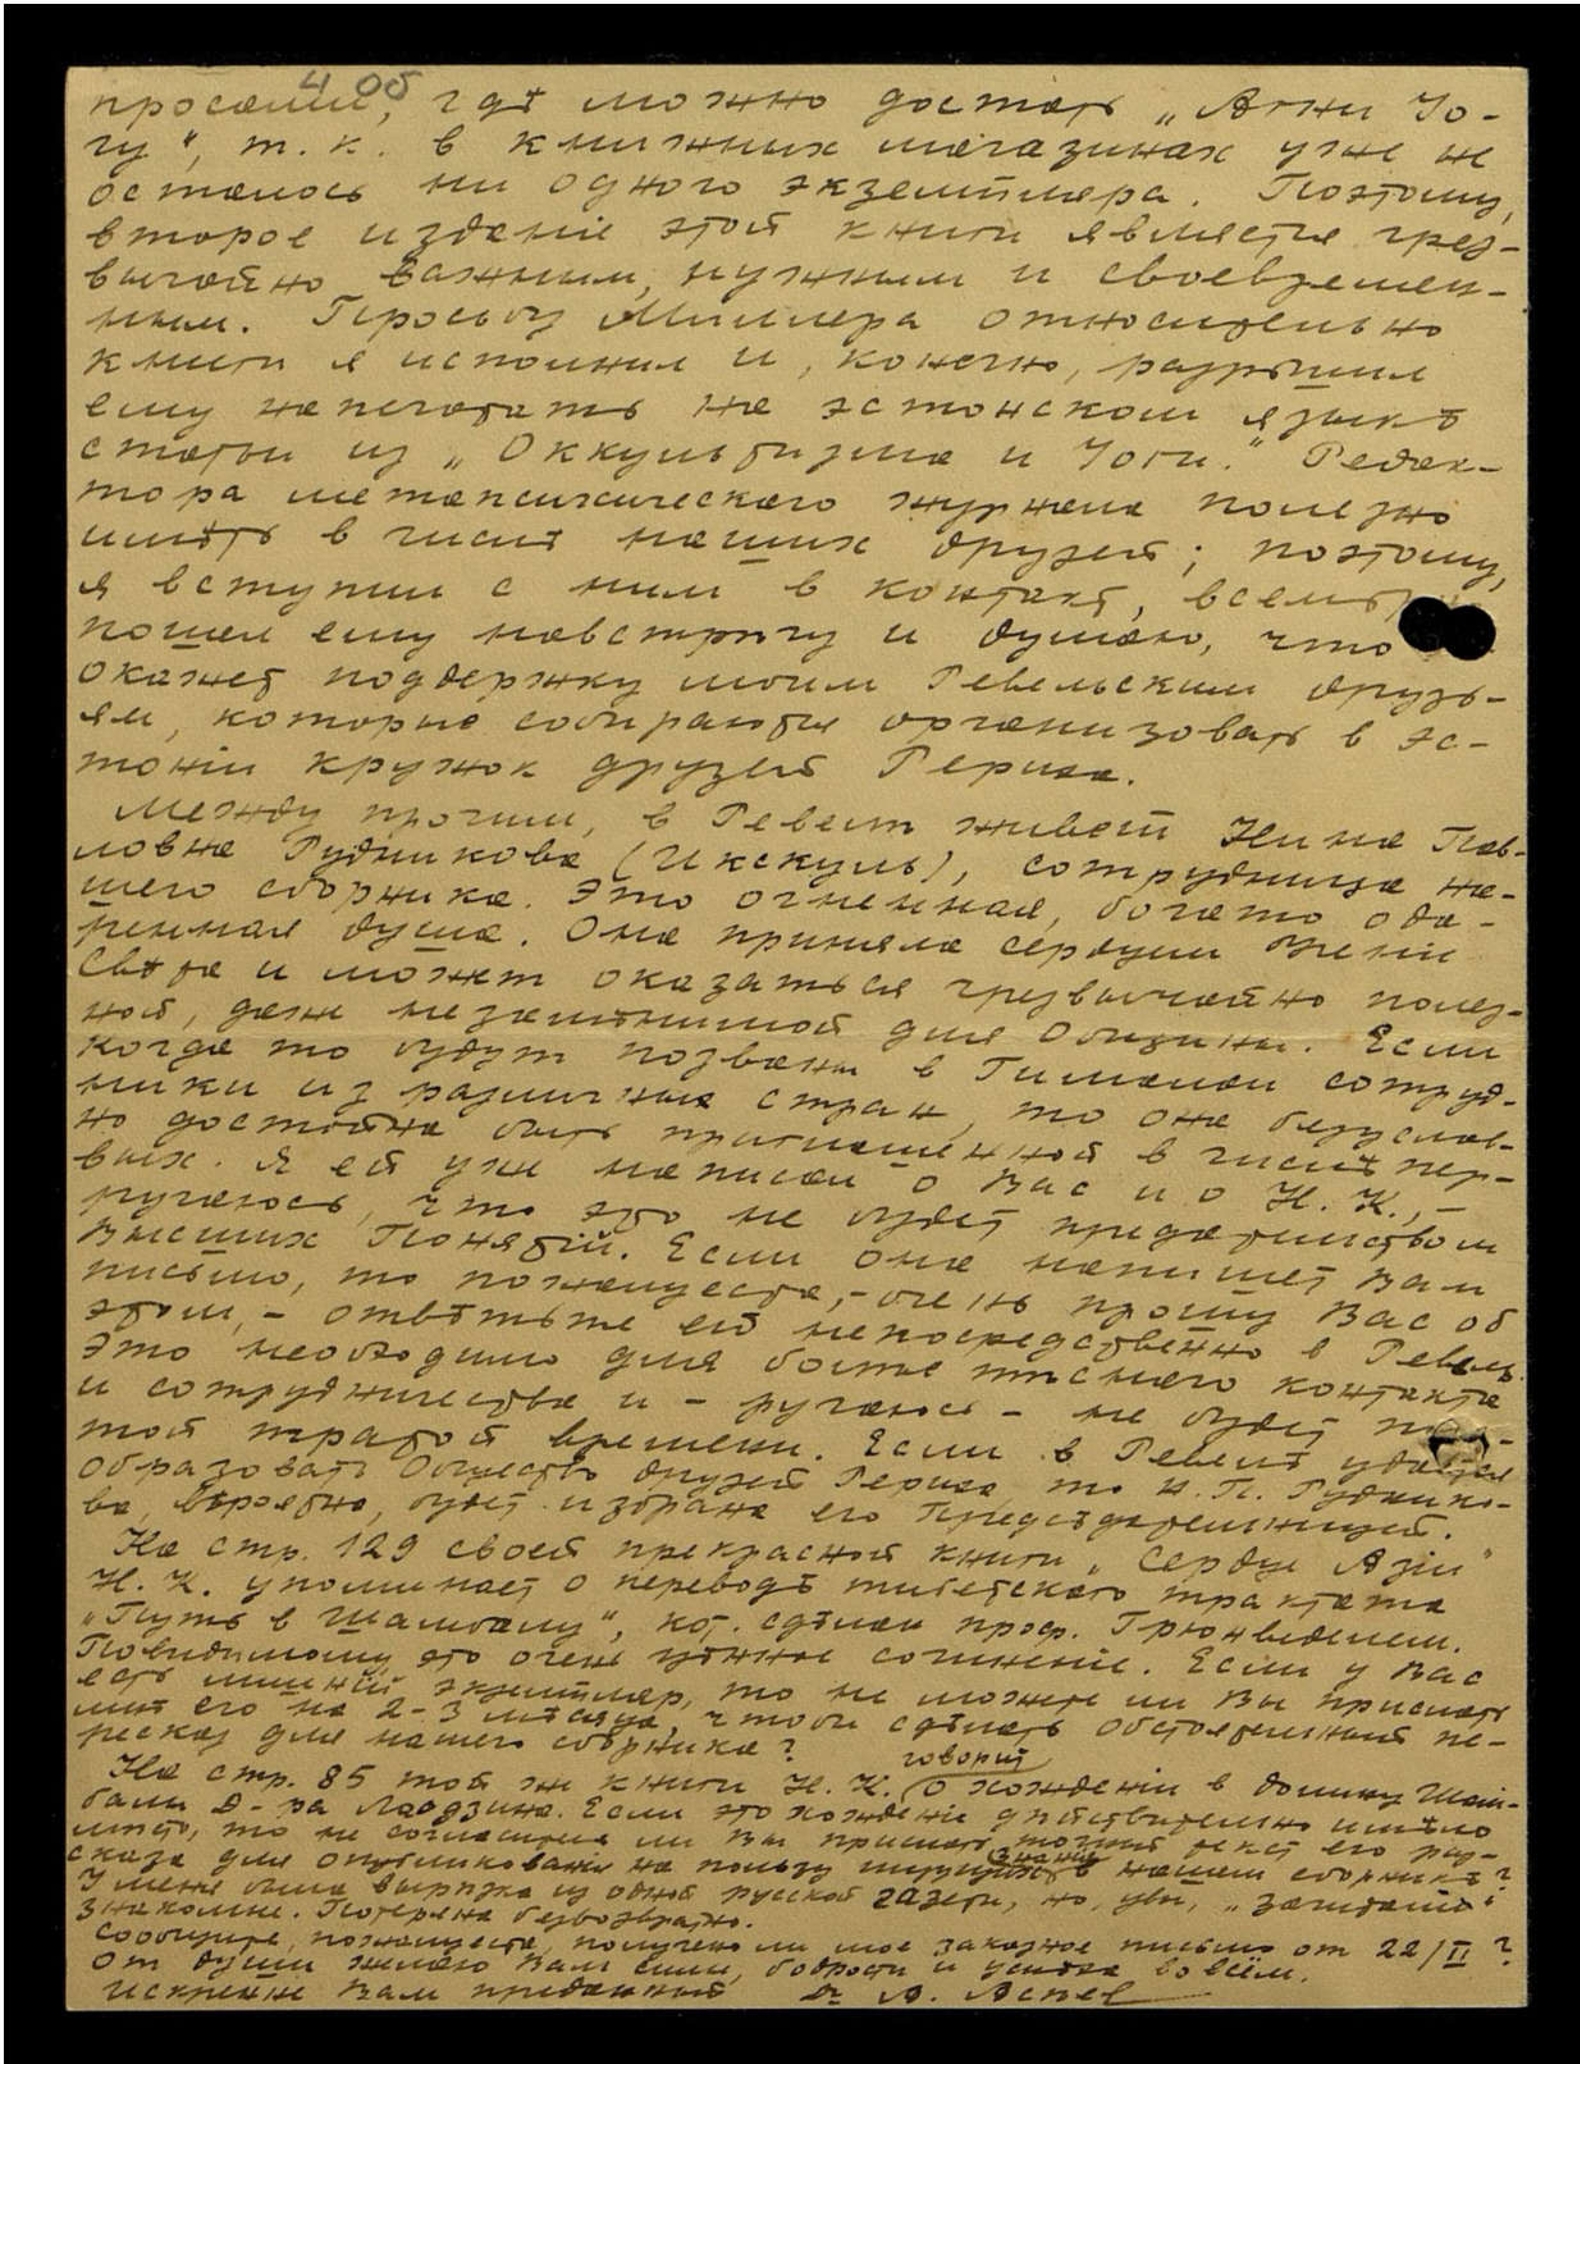 4 об
просами, гдѣ можно достать „Агни Йо-
гу“, т. к. в книжных магазинах уже не
осталось ни одного экземпляра. Поэтому,
второе изданіе этой книги является чрез-
вычайно важным, нужным и своевремен-
ным. Просьбу Миллера относительно
книги я исполнил и, конечно, разрѣшил
ему напечатать на эстонском языкѣ
статьи из „Оккультизма и Йоги.“ Редак-
тора метапсихического журнала полезно
имѣть в числѣ наших друзей; поэтому,
я вступил с ним в контакт, всемѣр
пошел ему навстрѣчу и думаю, что
окажет поддержку моим Ревельским друзь-
ям, которые собираются организовать в Эс-
тоніи кружок друзей Рериха.
Между прочим, в Ревелѣ живет Нина Пав-
ловна Рудникова (Икскуль), сотрудница на-
шего сборника. Это огненная, богато ода-
ренная душа. Она приняла сердцем Ученіе
Свѣта и может оказаться чрезвычайно полез-
ной, даже незамѣнимой для Общины. Если
когда то будут позваны в Гималаи сотруд-
ники из различных стран, то она безуслов-
но достойна быть приглашенной в числѣ пер-
вых. Я ей уже написал о Вас и о Н. К., –
ручаюсь, что это не будет предательством
Высших Понятій. Если она напишет Вам
письмо, то пожалуеста, – очень прошу Вас об
этом, – отвѣтьте ей непосредственно в Ревель.
Это необходимо для болѣе тѣснаго контакта
и сотрудничества и – ручаюсь – не будет
той тратой времени. Если в Ревелѣ удастся
образовать Общество друзей Рериха, то Н. П. Руднико-
ва, вѣроятно, будет избрана его Предсѣдательницей.
На стр. 129 своей прекрасной книги „Сердце Азіи“
Н. К. упоминает о переводѣ тибетскаго трактата
„Путь в Шамбалу“, кот. сдѣлан проф. Грюнведелем.
Повидимому, это очень цѣнное сочиненіе. Если у Вас
есть лишній экземпляр, то не можете ли Вы прислать
мнѣ его на 2-3 мѣсяца, чтобы сдѣлать обстоятельный пе-
ресказ для нашего сборника?
На стр. 85 той же книги Н. К. говорит о хожденіи в долину Шам-
балы Д-ра Лаодзина. Если это хожденіе дѣйствительно имѣло
мѣсто, то не согласитесь ли Вы прислать точный текст его раз-
сказа для опубликованія на пользу ищущих знанія в нашем сборникѣ?
У меня была вырѣзка из одной русской газеты, но, увы, „зачитали“
знакомые. Потеряна безвозвратно.
Сообщите, пожалуеста, получено ли мое заказное письмо от 22/II?
От души желаю Вам силы, бодрости и успѣха во всём.
Искренне Вам преданный Dr А. Асеев